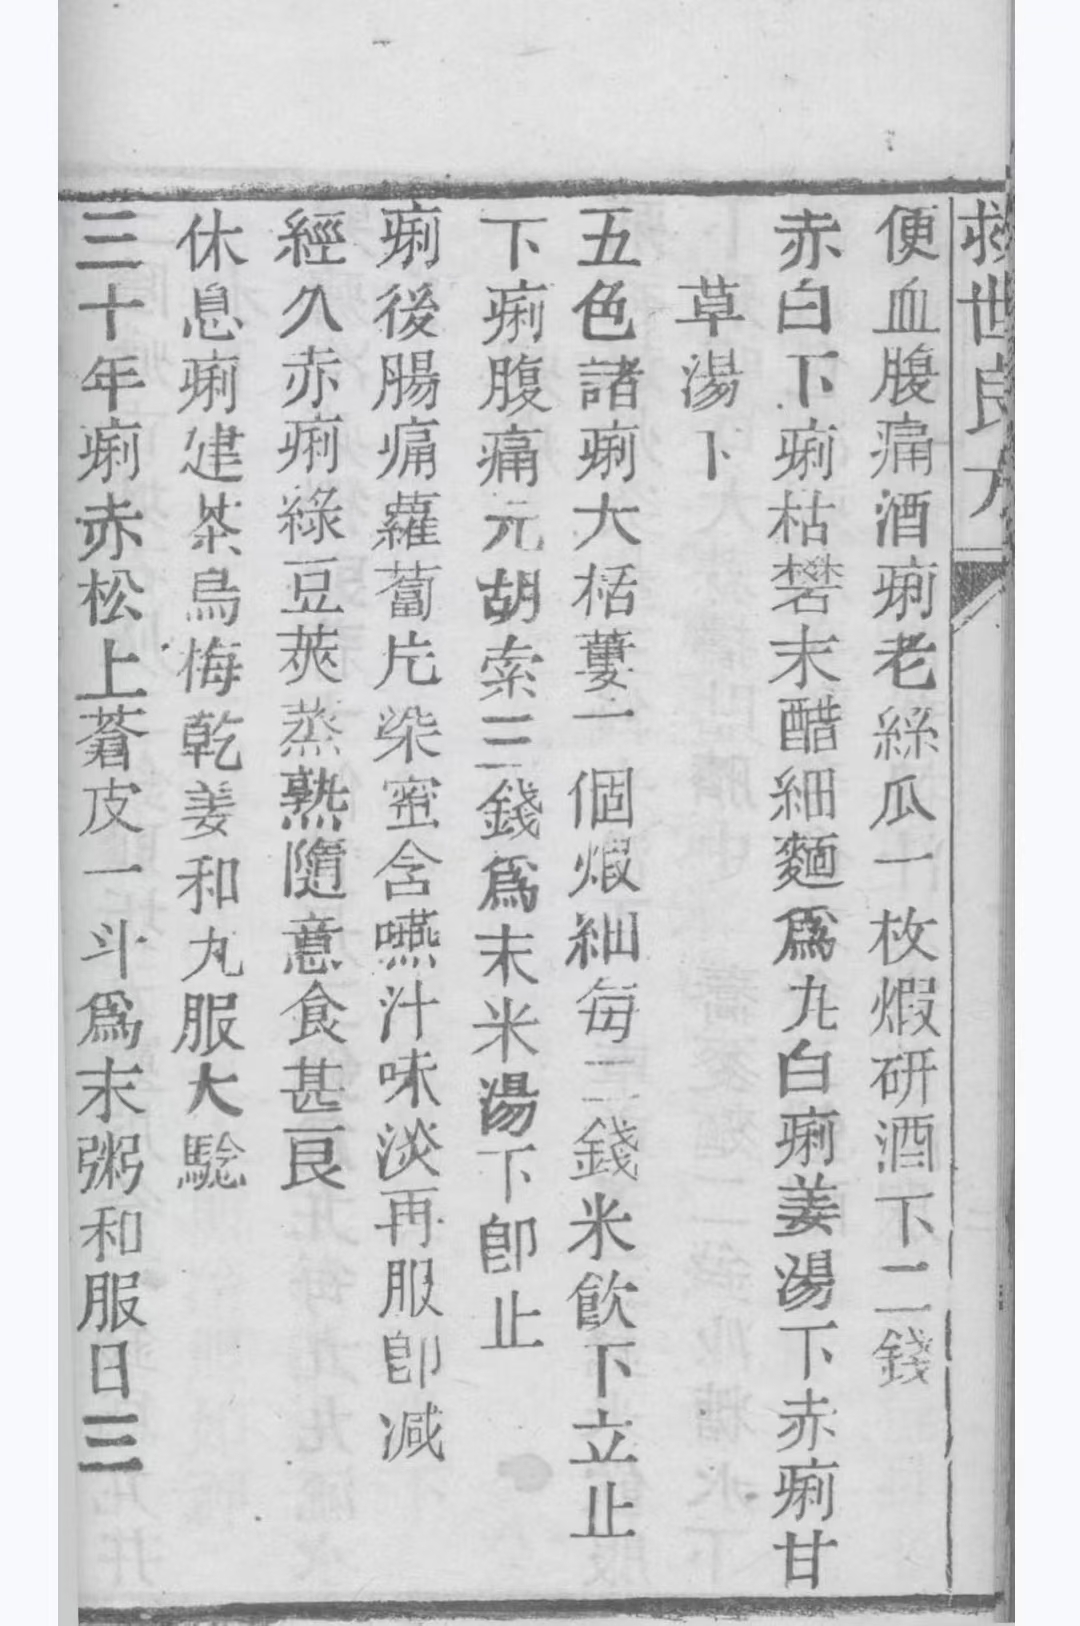 救世良方
便血腹痛酒痢老絲瓜一枚煅研酒下二錢
赤白下痢枯礬末醋細麵爲丸白痢姜湯下赤痢甘
草湯下
五色諸痢大栝蔞一個煅細每二錢米飲下立止
下痢腹痛元胡索三錢爲末米湯下卽止
痢後腸痛蘿蔔片染蜜含嚥汁味淡再服卽减
經久赤痢綠豆莢蒸熟隨意食甚良
休息痢建茶烏梅乾姜和丸服大騐
三十年痢赤松上蒼皮一斗爲末粥和服日三